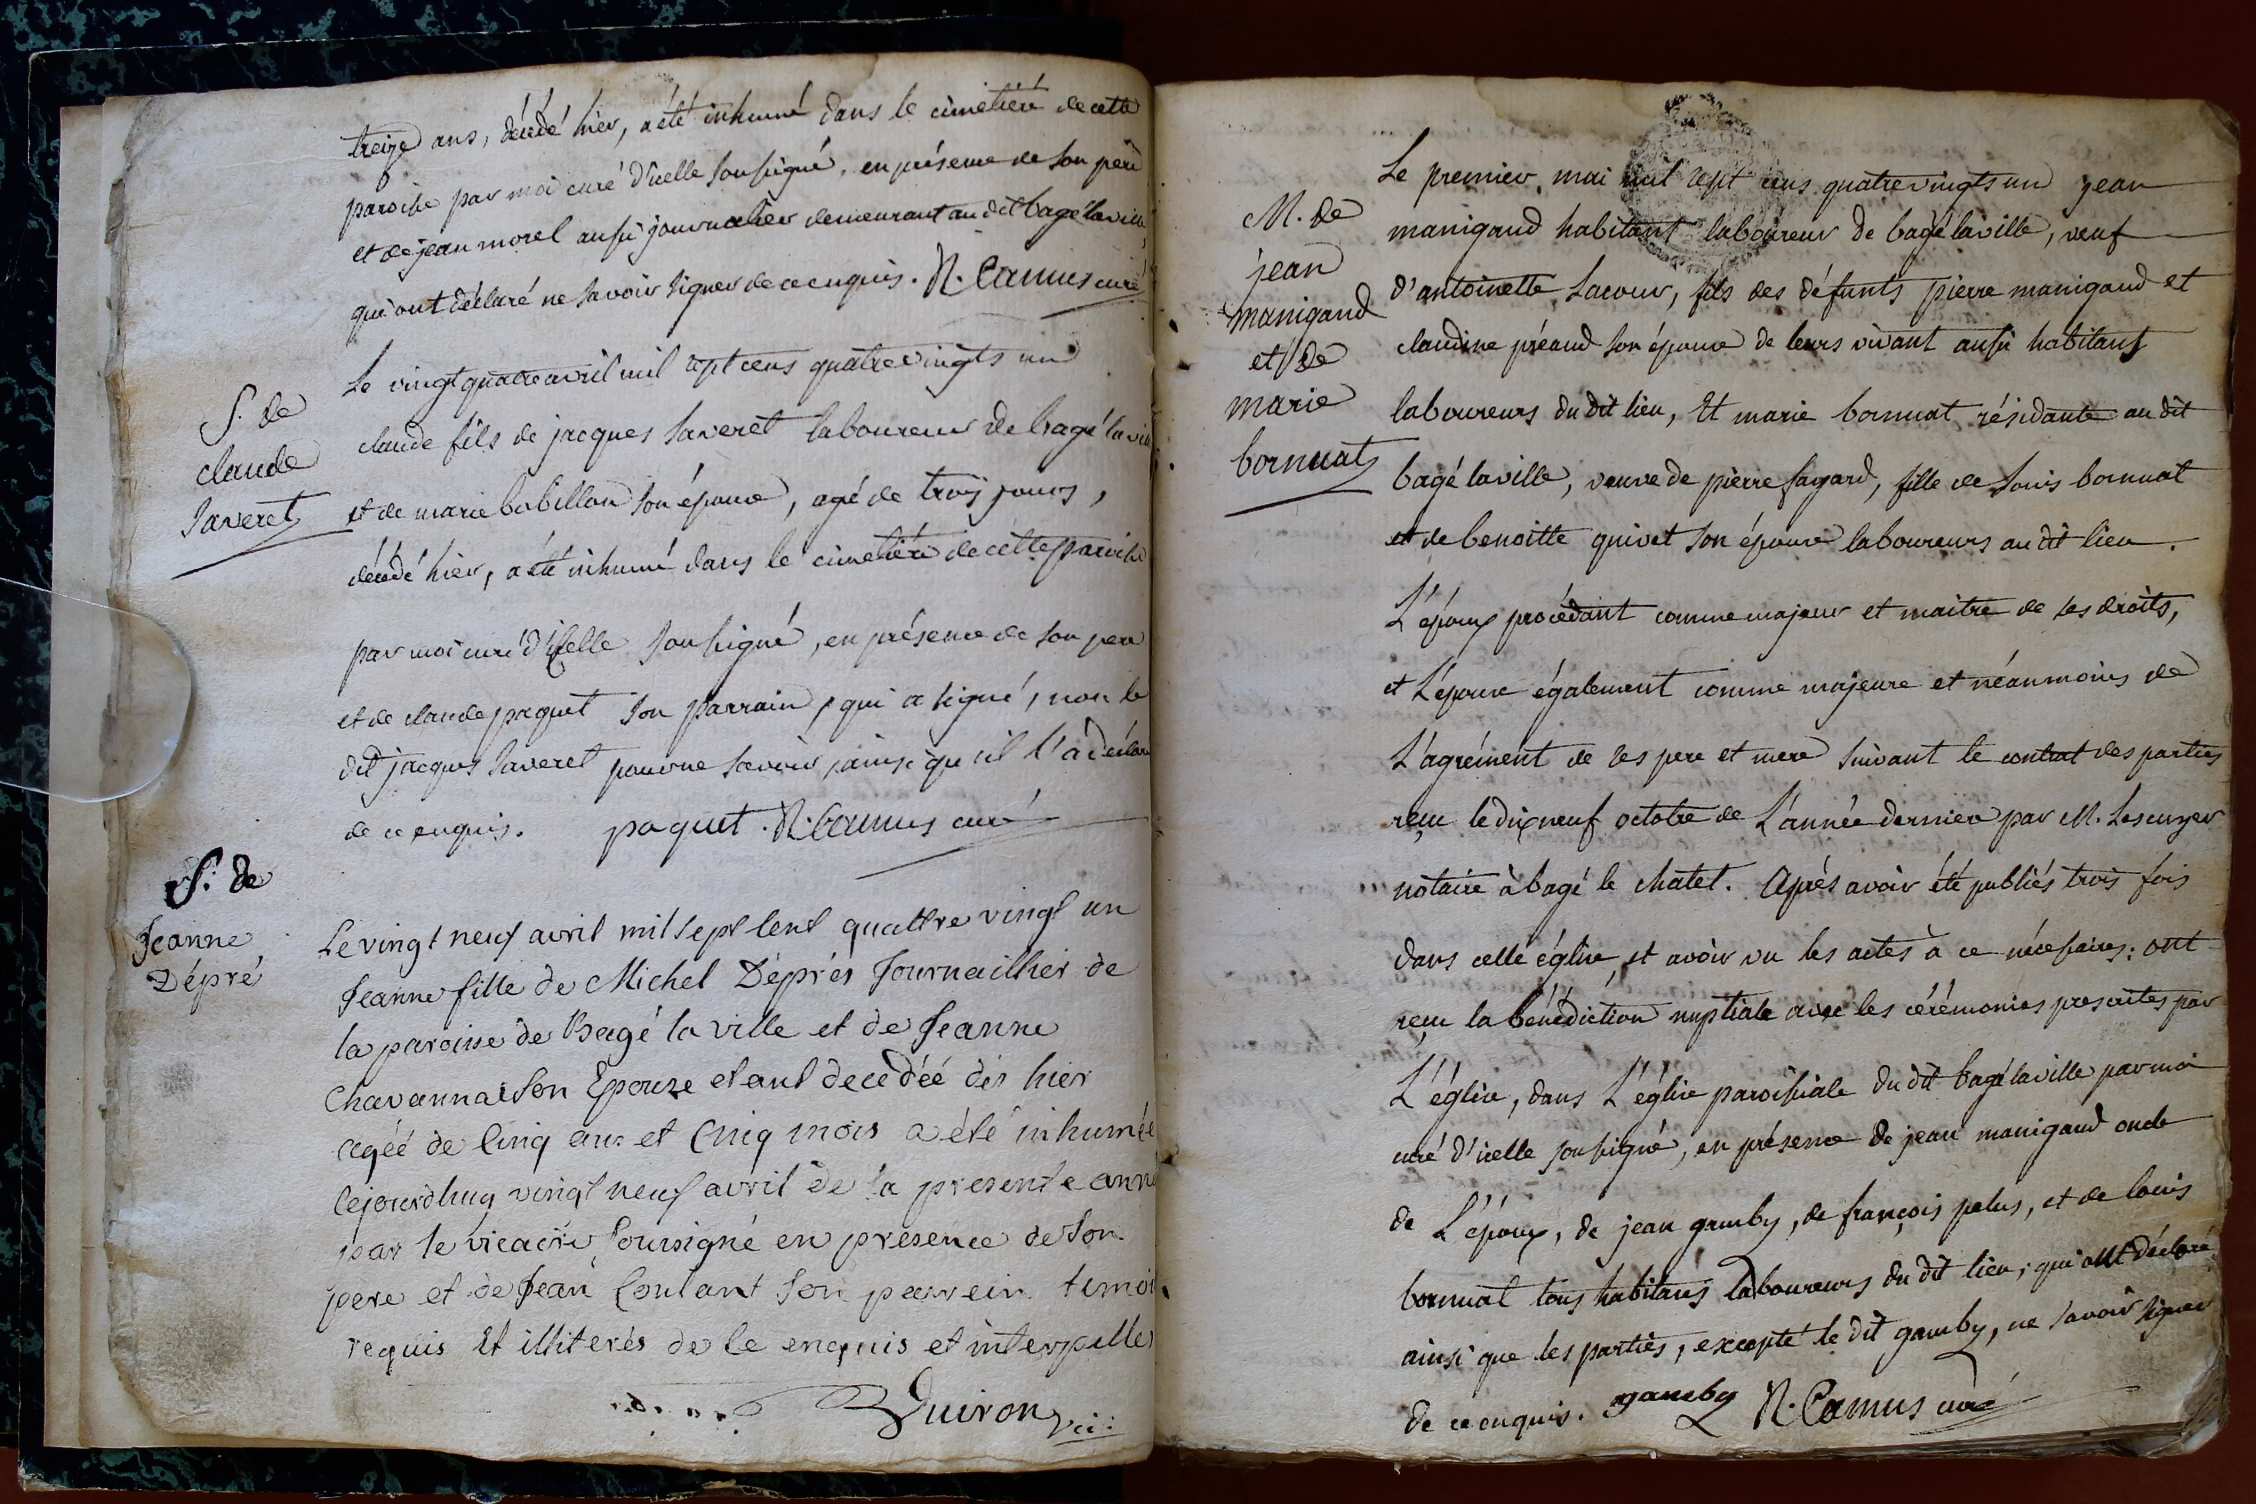 treize ans, décédé hier, a été inhumé dans le cimetière de cette
paroisse par moi curé d'icelle soussigné, en présence de son père
et de jean morel aussi journalier demeurant au dit bagé la ville
qui ont déclaré ne savoir signer de ce enquis. N. Camus curé
S. de
claude
Saveret
Le vingt quatre avril mil sept cens quatre vingts un
claude fils de jacques Saveret laboureur de bagé la vil
et de marie bobillon son épouse, agé de trois jours,
décédé hier, a été inhumé dans le cimetière de cette paroisse
par moi curé d'icelle soussigné, en présence de son pere
et de claude paquet son parrain, qui a signé, non le
dit jacques Saveret pour ne savoir, ainsi qu'il l'a déclaré
de ce enquis. paquet. N. Camus curé
S. de
Jeanne
Dépré
Le vingt neuf avril mil sept Cent quattre vingt un
Jeanne fille de Michel Déprés Journaillier de
la paroisse de Bagé la ville et de Jeanne
Chavanna Son Epouze etant decedéé dés hier
agéé de Cinq ans et Cinq mois a été inhumée
Cejourdhuy vingt neuf avril de la presente anné
par le vicaire Soussigné en presence de Son
pere et de Jean Coulant Son parrein temoi
requis Et illiterés de Ce enquis et interpellés
Guiron vic:
M. de
jean
manigand
et de
marie
bornuat
Le premier mai mil sept cens quatre vingts un jean
manigand habitant laboureur de bagé la ville, veuf
d'antoinette Lacour, fils des défunts pierre manigand et
claudine préaud son épouse de leurs vivant aussi habitans
laboureurs du dit lieu, Et marie bornuat résidante au dit
bagé la ville, veuve de pierre fayard, fille de Louis bornuat
et de benoitte quivet son épouse laboureurs au dit lieu.
L'époux procédant comme majeur et maitre de ses droits,
et L'épouse également comme majeure et néanmoins de
L'agrément de ses pere et mere suivant le contrat des parties
reçu le dix neuf octobre de L'année derniere par M. Lescuyer
notaire à bagé le chatel. Après avoir été publiés trois fois
dans cette église, et avoir vu les actes à ce nécessaires: ont
reçu la bénédiction nuptiale avec les cérémonies prescrites par
L'église, dans L'église paroissiale du dit bagé la ville par moi
curé d'icelle soussigné, en présence de jean manigand oncle
de L'époux, de jean gamby, de françois pelus, et de louis
bornuat tous habitans laboureurs du dit lieu, qui ont déclaré
ainsi que les parties, excepté le dit gamby, ne savoir signer
de ce enquis. gamby N. Camus curé